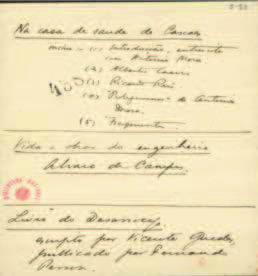 Na casa de saude de Cascaes
inclue - (1) Introducção, entrevista
com Antonio Mora
(2) Alberto Caeiro
(3) Ricardo Reis
(4) Prolegomenos de Antonio
Mora.
(5) Fragmentos.
Vida e obras do engenheiro
Alvaro de Campos
Livro do Desasocego
escripto por Vicente Guedes,
publicado por Fernando
Pessoa.